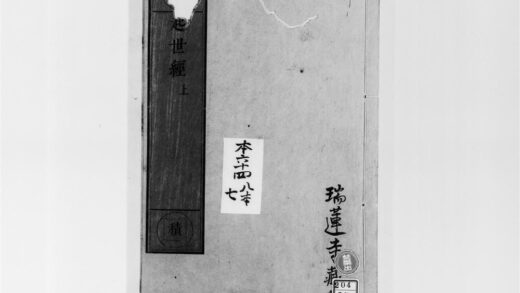 世經 上
積
本六十四 八本
七
瑞蓮寺藏
204